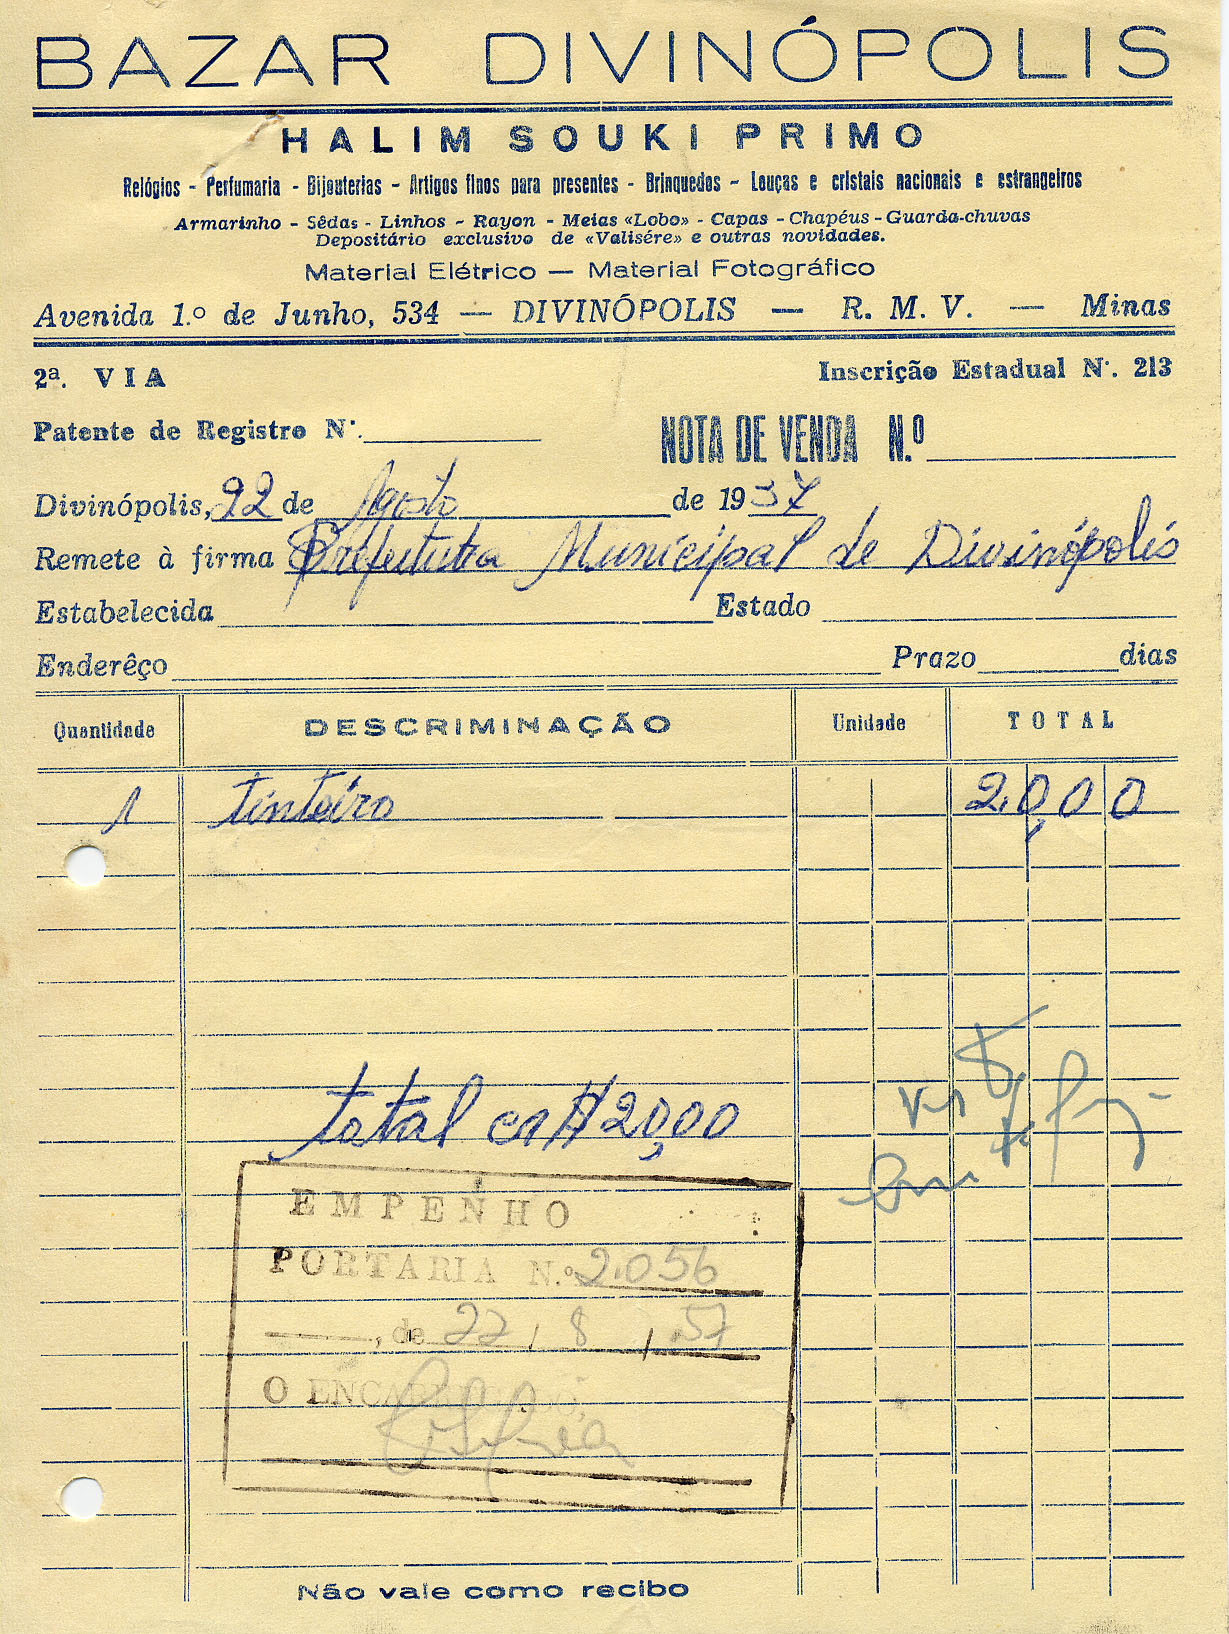 BAZAR DIVINÓPOLIS
HALIM SOUKI PRIMO
Relógios - Perfumaria - Bijouterias - Artigos finos para presentes - Brinquedos - Louças e cristais nacionais e estrangeiros
Armarinho - Sêdas - Linhos - Rayon - Meias «Lobo» - Capas - Chapéus - Guarda-chuvas
Depositário exclusivo de «Valisére» e outras novidades.
Material Elétrico — Material Fotográfico
Avenida 1.º de Junho, 534 — DIVINÓPOLIS — R. M. V. — Minas
2ª. VIA Inscrição Estadual N·. 213
Patente de Registro N·. NOTA DE VENDA N.º
Divinópolis, 22 de Agosto de 1957
Remete à firma Prefeitura Municipal de Divinópolis
Estabelecida Estado
Enderêço Prazo dias
Quantidade DESCRIMINAÇÃO Unidade TOTAL
1 tinteiro 20,00
total cr$ 20,00
EMPENHO
PORTARIA N.º 2.056
, de 22 / 8 / 57
O ENCARREGADO,
Não vale como recibo